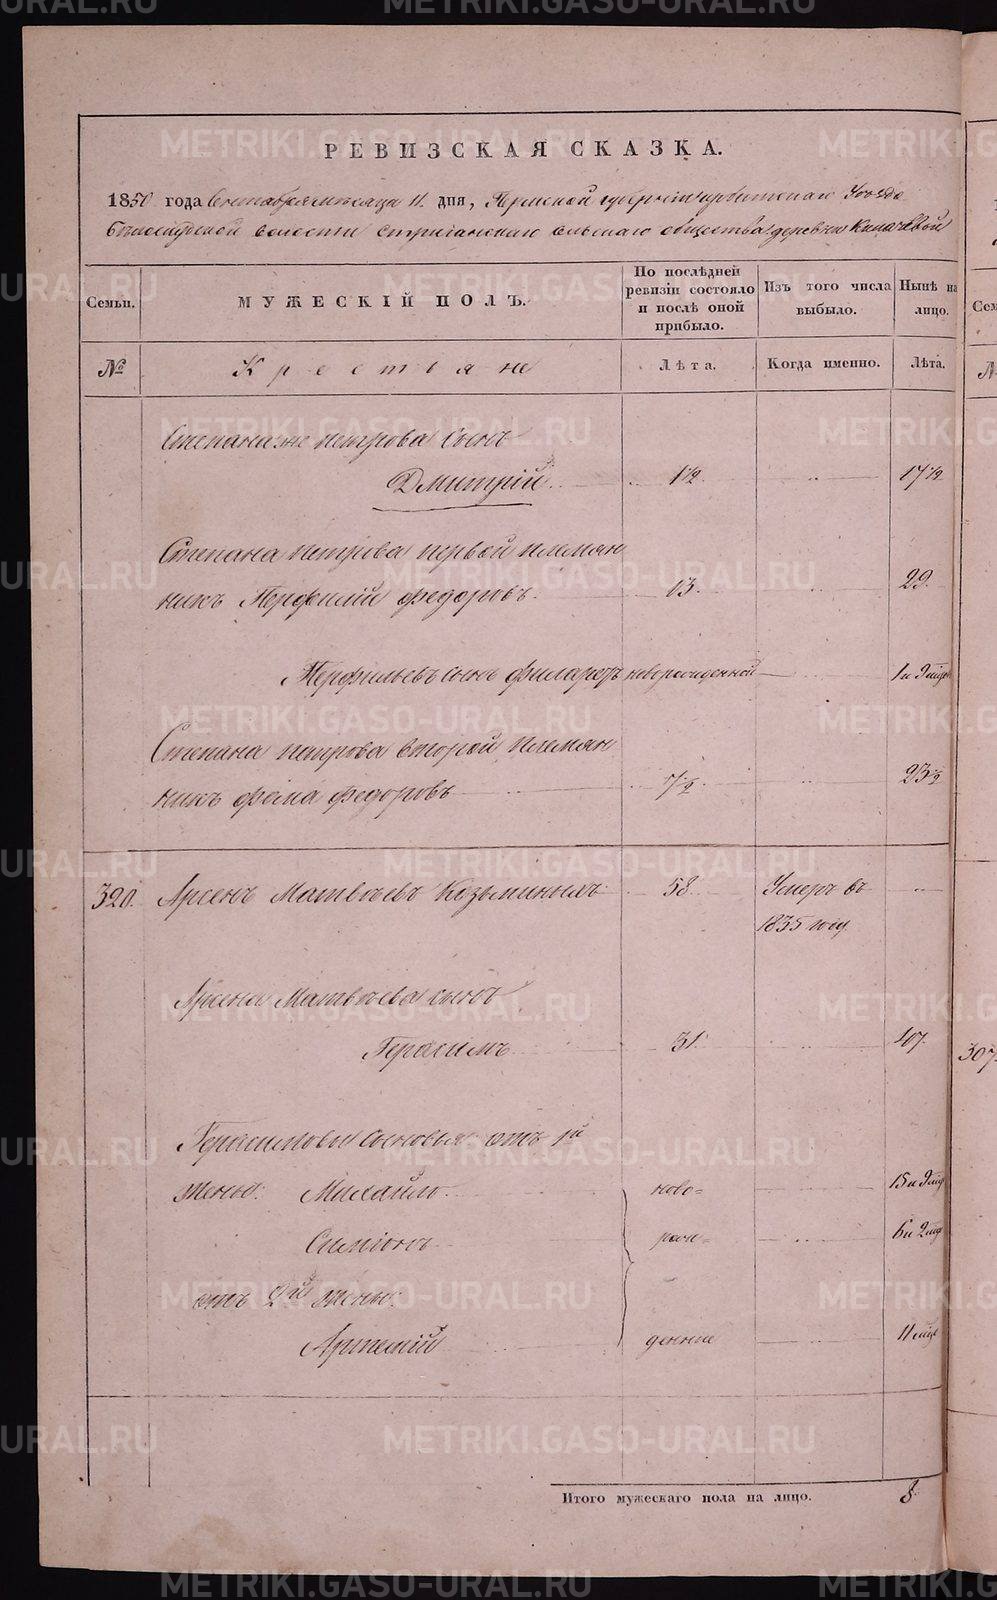 РЕВИЗСКАЯ СКАЗКА.
1850 года Сентября месяца 11 дня, Пермской губернiи Ирбитскаго Уѣзда
Бѣлослудской волости Стриганскаго сельскаго общества деревни
Семьи.
МУЖЕСКІЙ ПОЛЪ.
По послѣдней ревизіи состояло и послѣ оной прибыло.
Изъ того числа выбыло.
Нынѣ на лицо.
№
Крестьяне
Лѣта.
Когда именно.
Лѣта.
Степана же Петрова сынъ
Дмитрій 1½ 17½
Степана Петрова первой племян
никъ Перфилій Федоровъ 13. 29.
Перфильевъ сынъ Филаретъ новорожденной 1 и 9 мѣс
Степана Петрова второй племян
никъ Фома Федоровъ 7½ 23½
320. Арсенъ Матвѣевъ Козьминыхъ 58. Умеръ въ
1835 году
Арсена Матвѣева сынъ
Герасимъ 31. 47.
Герасимовы сыновья отъ 1й
жены: Михайло ново= 15 и 9 мѣс
Симіонъ рож= 6 и 2 мѣс
отъ 2й жены:
Артемій денные 11 мѣс
Итого мужескаго пола на лицо. 8
METRIKI.GASO-URAL.RU